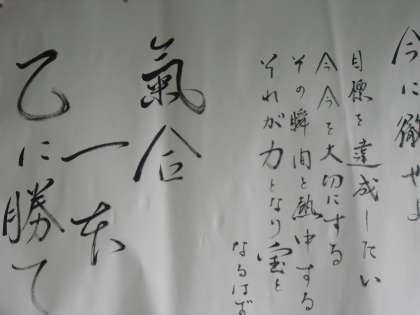 今に徹せよ
目標を達成したい
今今を大切にする
その瞬間を熱中する
それが力となり宝と
なるはず
氣合
一本
己に勝て